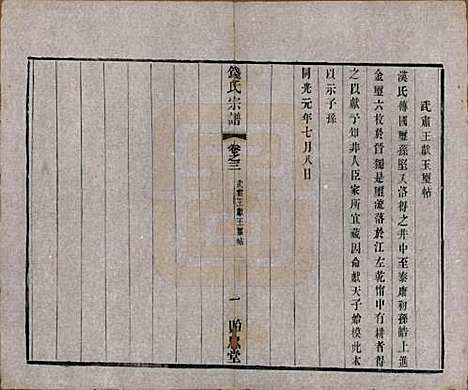 武肅王獻玉璽帖
漢氏傳國璽孫堅入洛得之井中至泰康初孫皓上漢
金璽六枚於晉獨是璽流落於江左乾甯中有耕者得
之以獻予知非人臣家所宜藏因命獻天子始模此本
以示子孫
同光元年七月八日
錢氏宗譜
卷之三
武肅王獻玉璽帖
一
堂